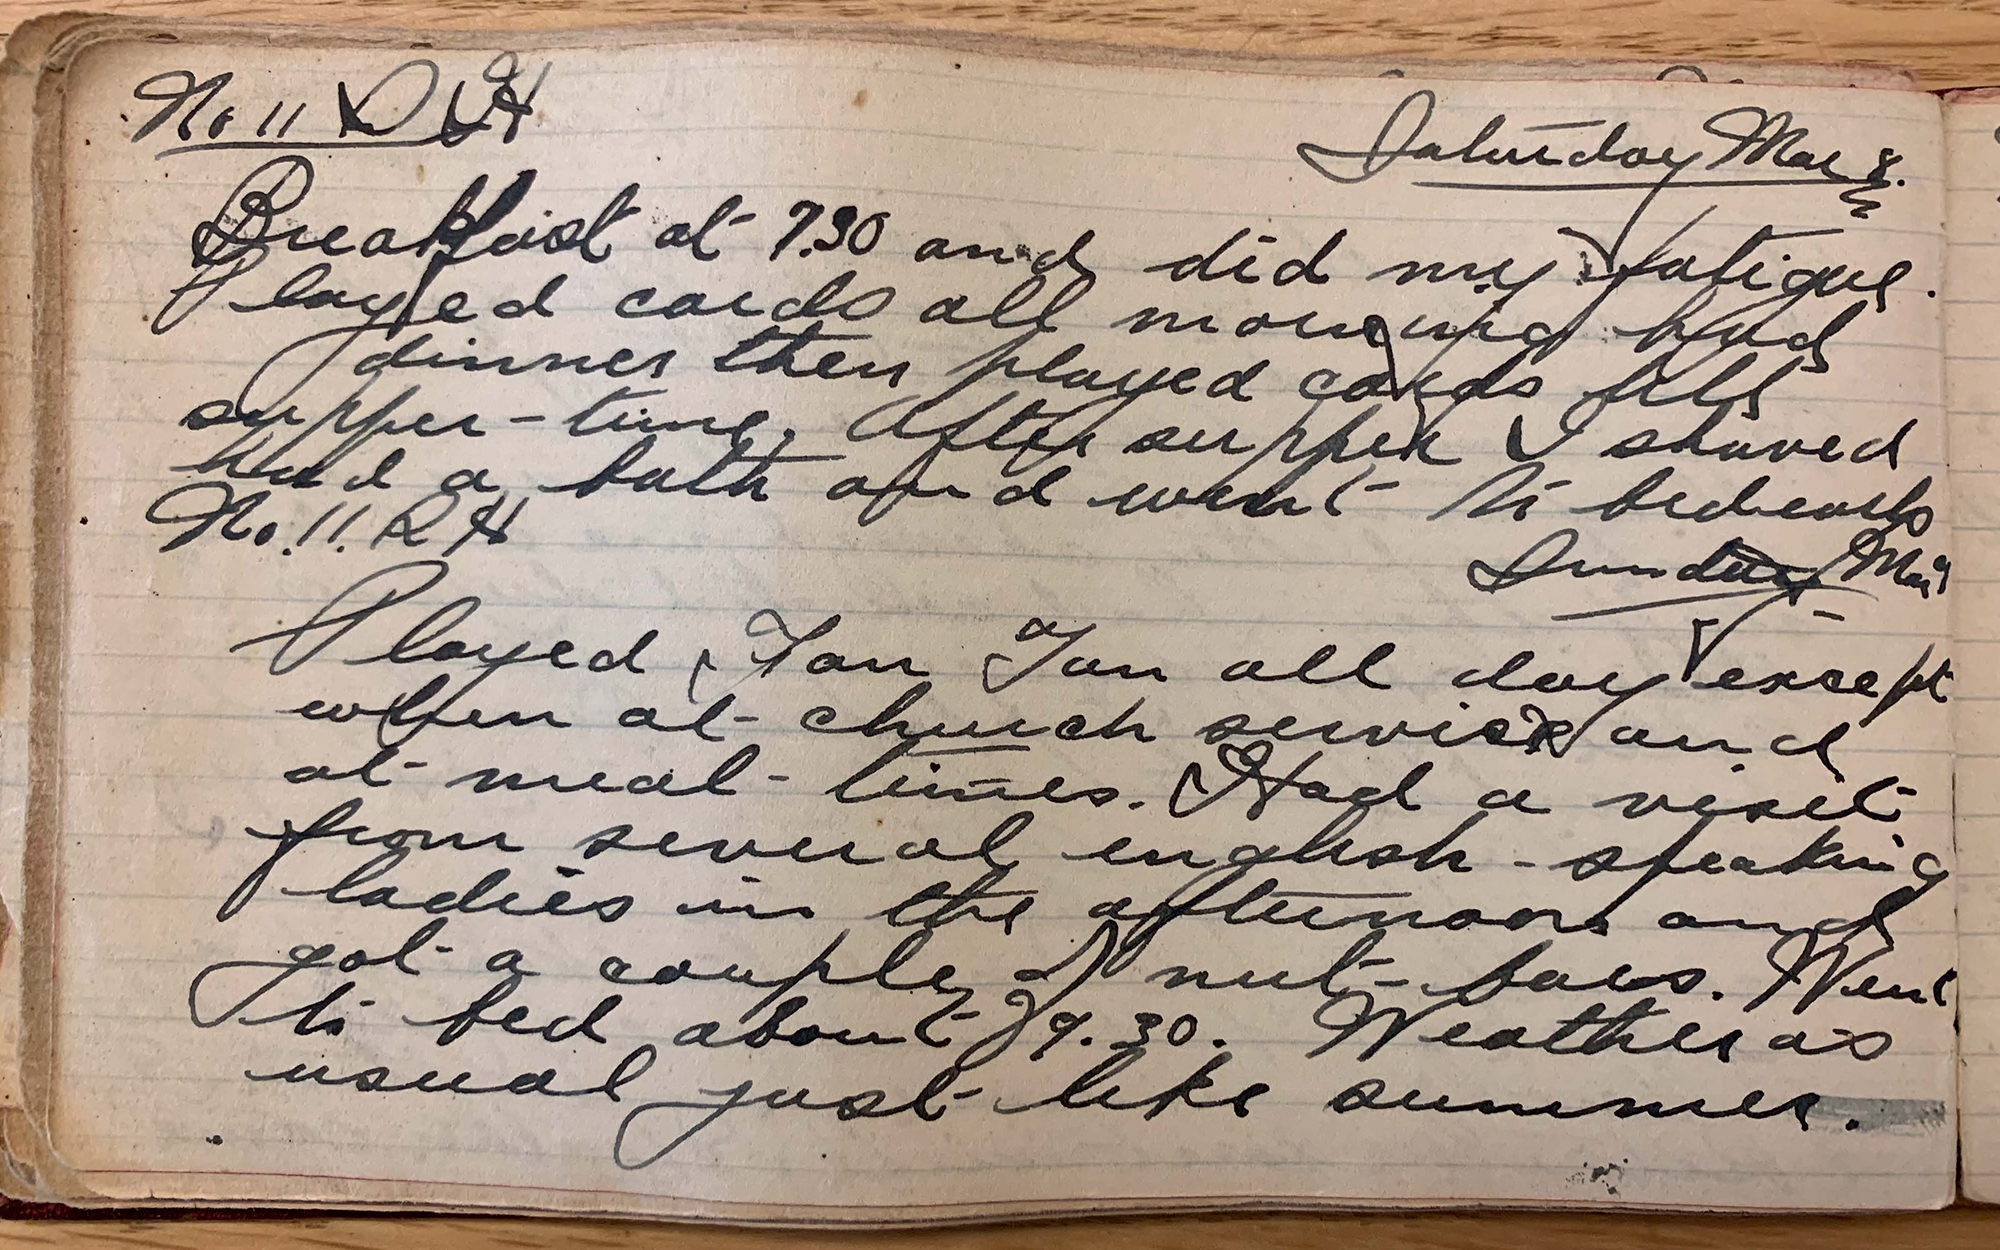 No 11 D U H
Saturday Mar 8.
Breakfast at 7.30 and did my fatigue.
Played cards all morning had
dinner then played cards till
supper-time. After supper I shaved
had a bath and went to bed early
No. 11. R H
Sunday Mar 9
Played Fan Tan all day except
when at church service and
at meal-times. Had a visit
from several english-speaking
ladies in the afternoon and
got a couple of nut-bars. Went
to bed about 9.30. Weather as
usual just like summer.